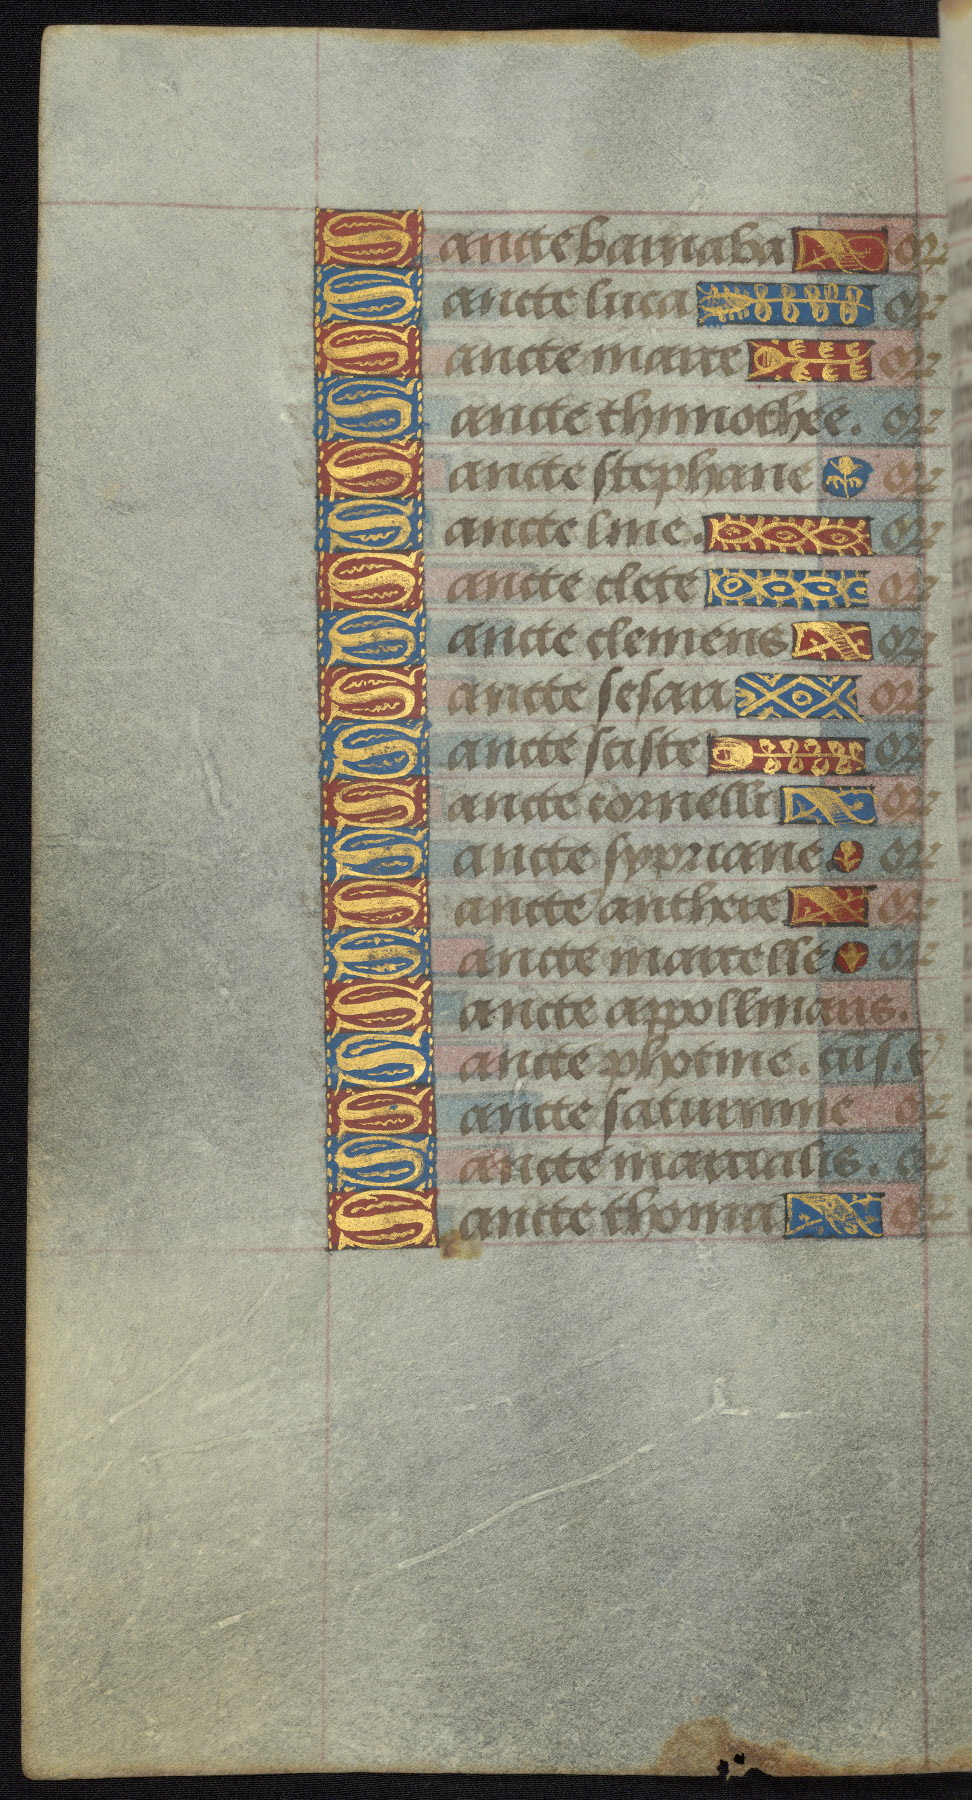 Sancte barnaba or
Sancte luca or
Sancte marce or
Sancte thimothee. or
Sancte stephane or
Sancte line. or
Sancte clete or
Sancte clemens or
Sancte sesari or
Sancte sciste or
Sancte cornelli or
Sancte sypriane or
Sancte anthere or
Sancte marcelle or
Sancte appollinaris.
Sancte photine. cus.t
Sancte saturnine or
Sancte marcialis. or
Sancte thoma or